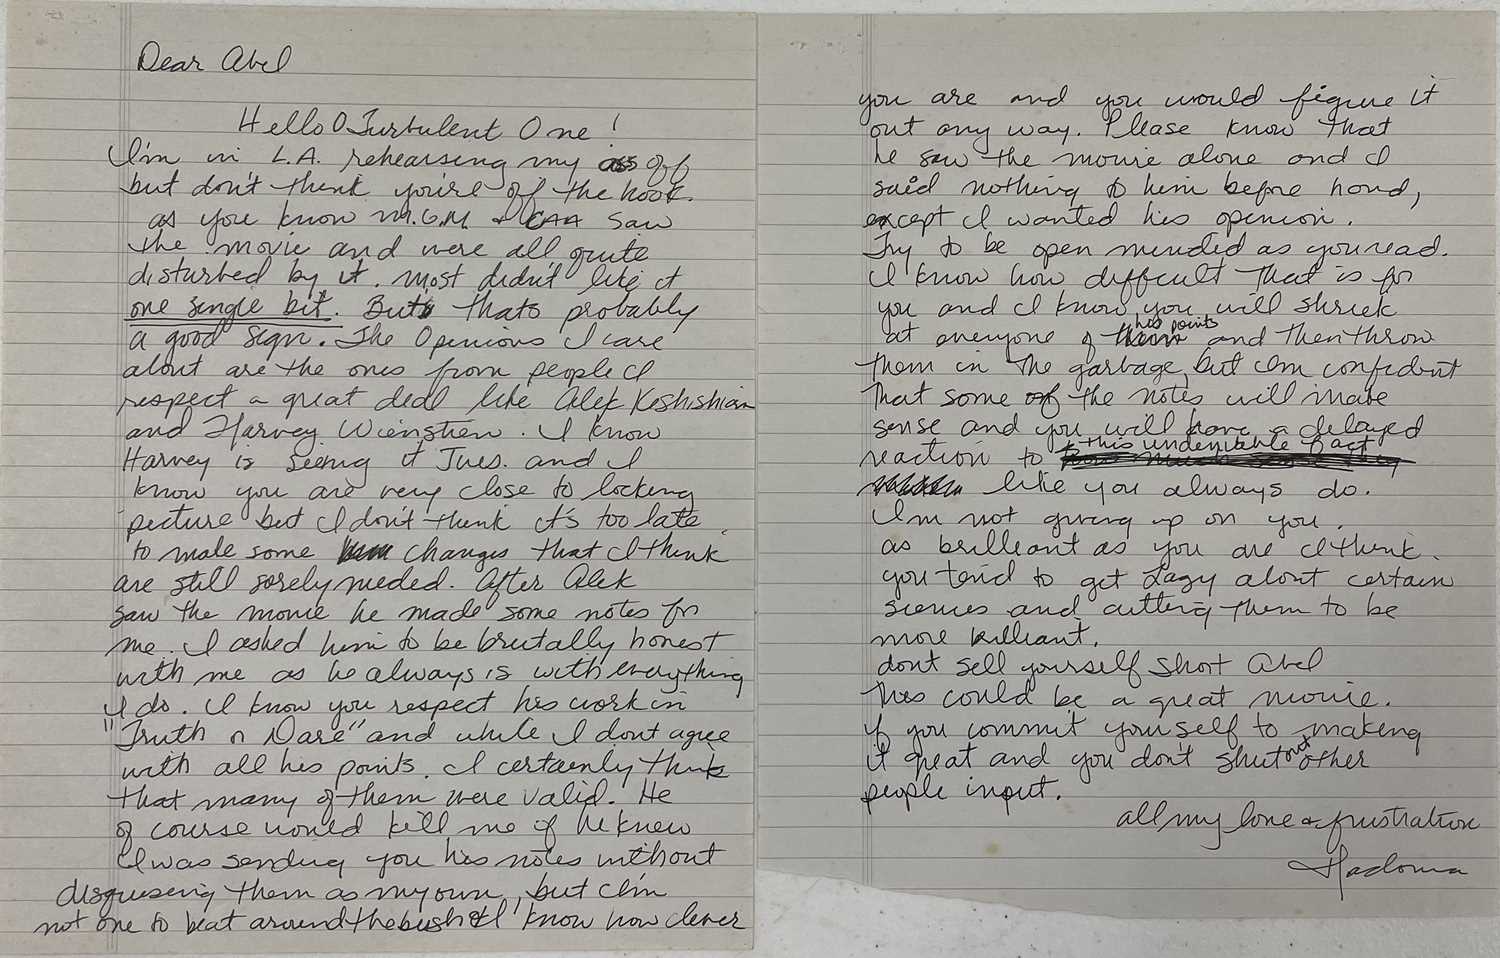 Dear Abel
Hello O Turbulent One!
I'm in L.A. rehearsing my ass off
but don't think you're off the hook.
as you know M.G.M. & CAA saw
the movie and were all quite
disturbed by it. most didn't like it
one single bit. But thats probably
a good sign. The Opinions I care
about are the ones from people I
respect a great deal like Alek Keshishian
and Harvey Wienstien. I know
Harvey is seeing it Tues. and I
know you are very close to locking
picture but I don't think it's too late
to make some changes that I think
are still sorely needed. After Alek
saw the movie he made some notes for
me. I asked him to be brutally honest
with me as he always is with everything
I do. I know you respect his work in
"Truth or Dare" and while I dont agree
with all his points. I certainly think
that many of them were valid. He
of course would kill me if he knew
I was sending you his notes without
disguising them as my own, but I'm
not one to beat around the bush & I know how clever
you are and you would figure it
out any way. Please know that
he saw the movie alone and I
said nothing to him before hand,
except I wanted his opinion.
Try to be open minded as you read.
I know how difficult that is for
you and I know you will shriek
at everyone of his points and then throw
them in the garbage, but I'm confident
that some of the notes will make
sense and you will have a delayed
reaction to this undeniable fact
like you always do.
I'm not giving up on you.
as brilliant as you are I think.
you tend to get Lazy about certain
scenes and cutting them to be
more brilliant.
dont sell yourself short Abel
this could be a great movie.
if you commit yourself to making
it great and you don't shut out other
people input.
all my love & frustration
Madonna